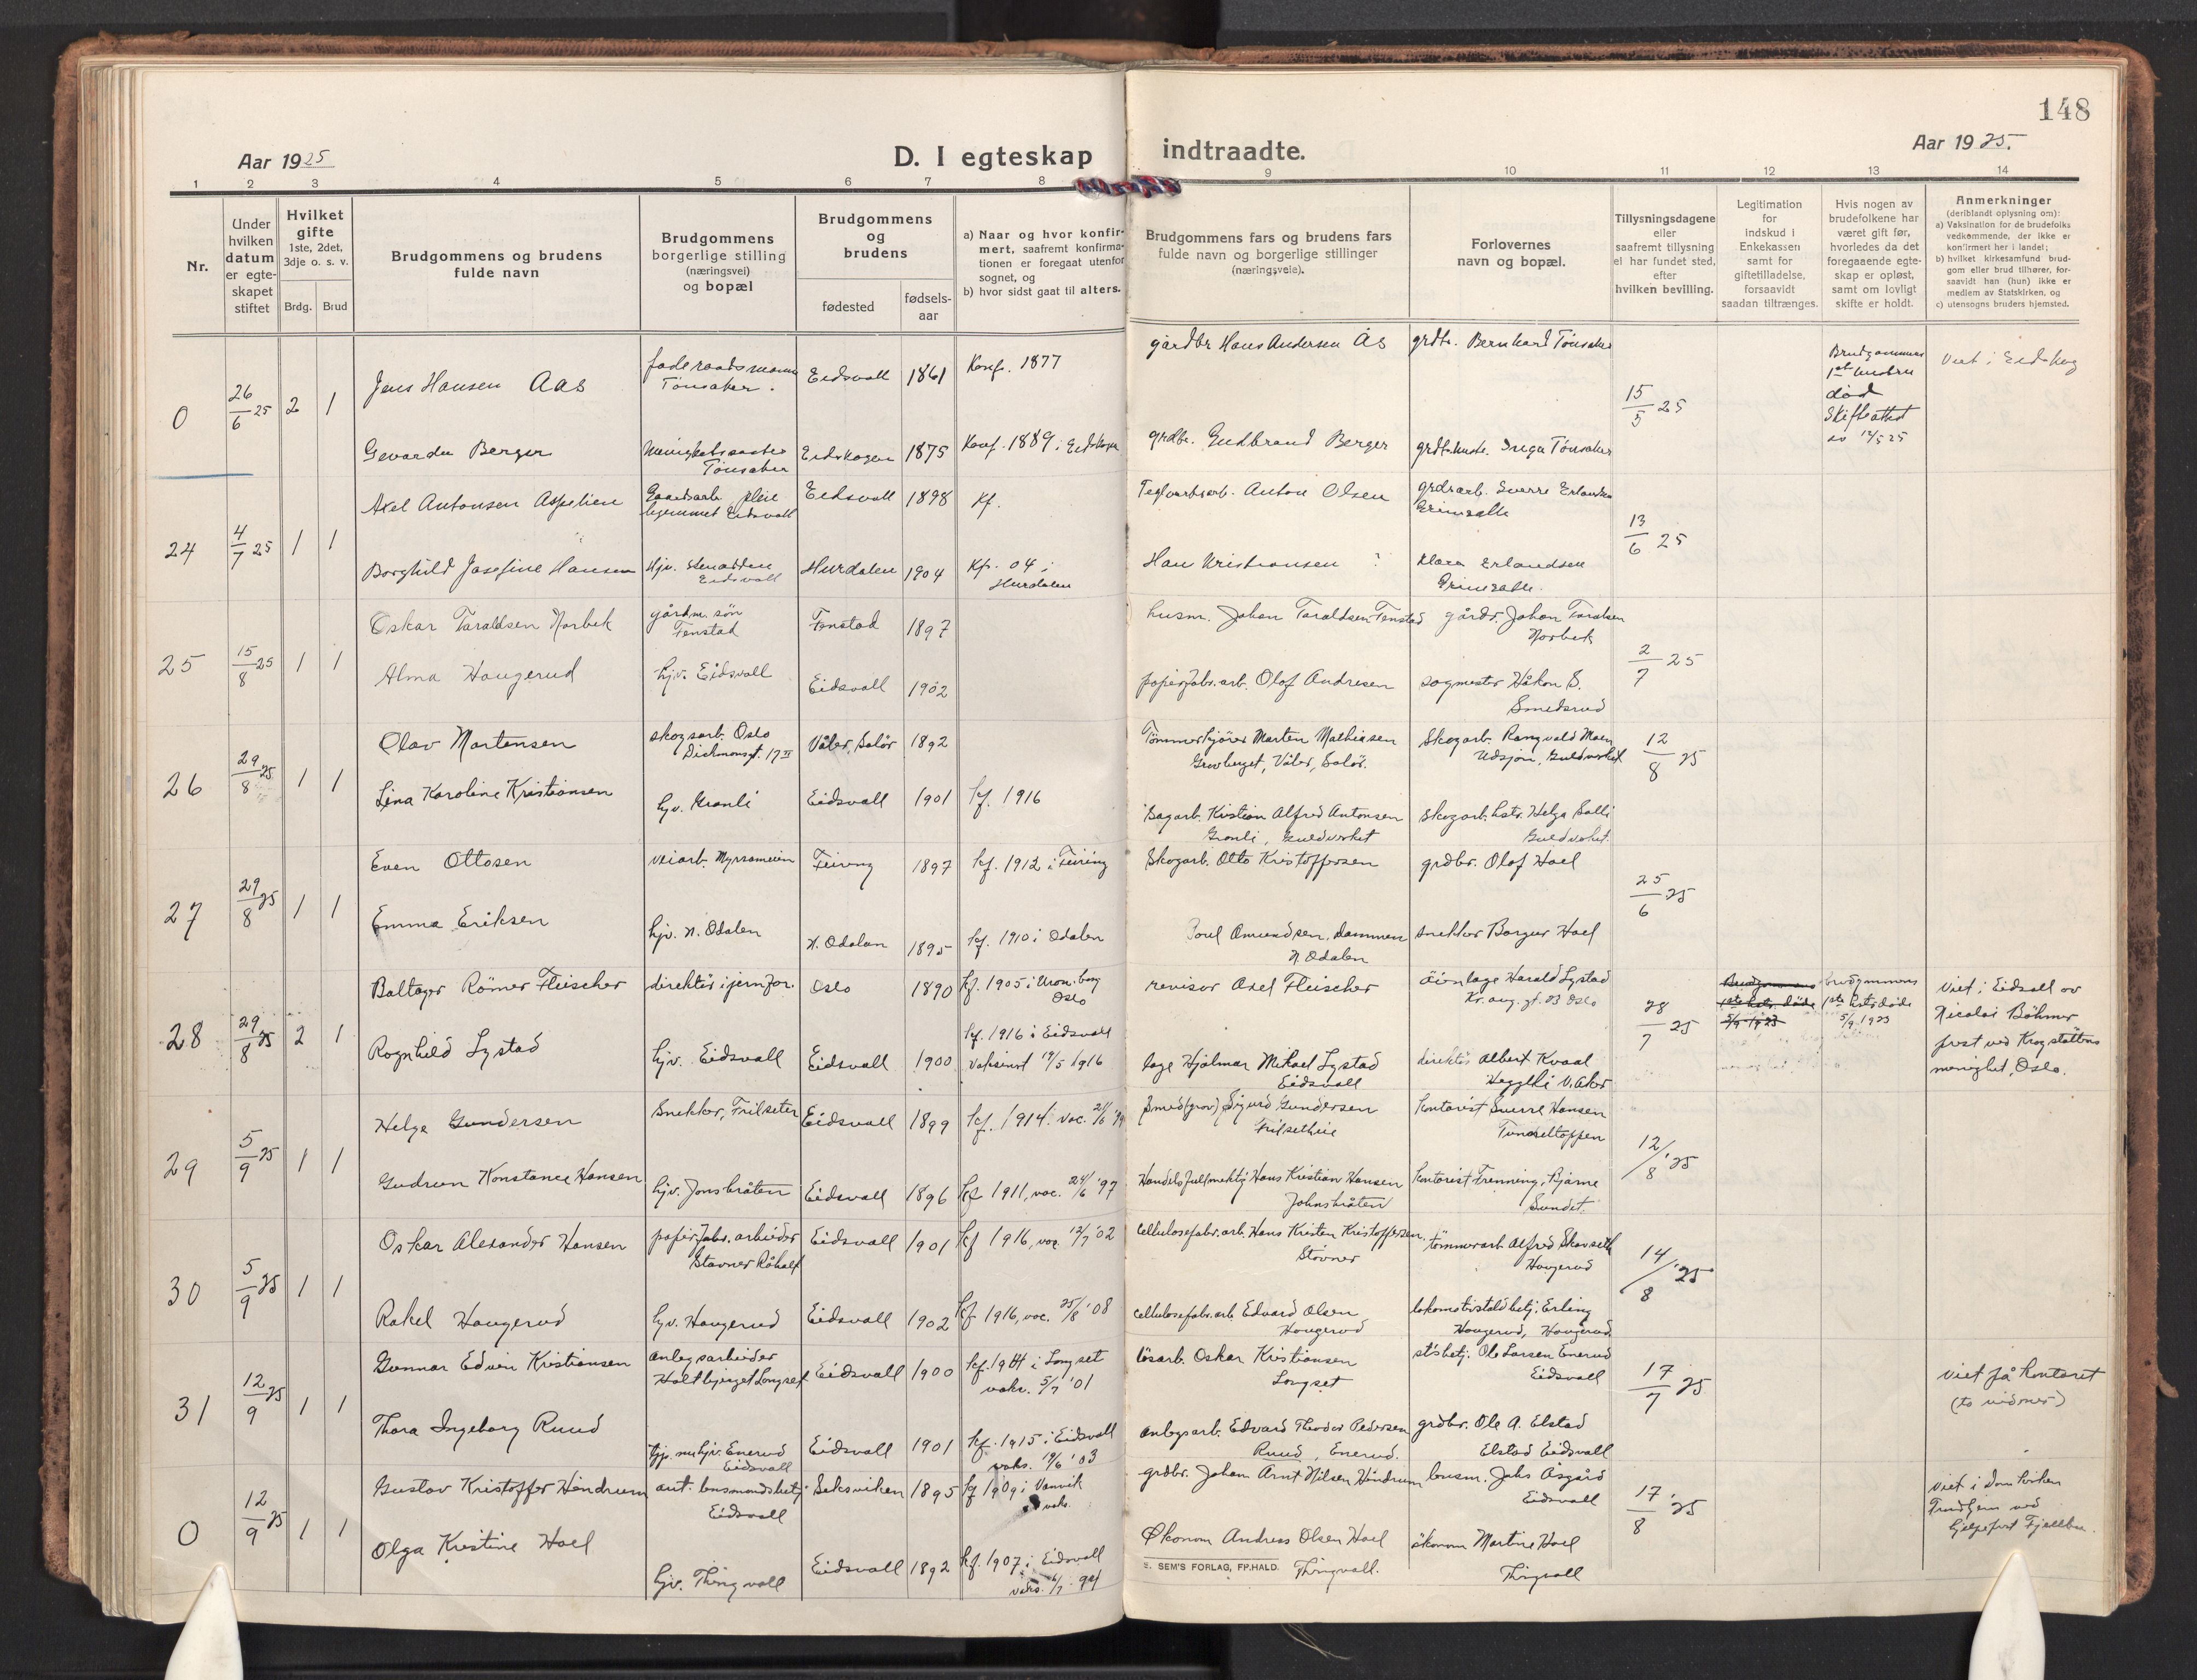 148
Aar 1925
D. I egteskap indtraadte.
Aar 1925.
1 2 3 4 5 6 7 8 9 10 11 12 13 14
Nr.
Under hvilken datum er egteskapet stiftet
Hvilket gifte
1ste, 2det, 3dje o. s. v.
Brdg. Brud
Brudgommens og brudens fulde navn
Brudgommens borgerlige stilling (næringsvei) og bopæl
Brudgommens og brudens
fødested
fødsels-aar
a) Naar og hvor konfirmert, saafremt konfirmationen er foregaat utenfor sognet, og
b) hvor sidst gaat til alters.
Brudgommens fars og brudens fars fulde navn og borgerlige stillinger (næringsveie).
Forlovernes navn og bopæl.
Tillysningsdagene eller saafremt tillysning ei har fundet sted, efter hvilken bevilling.
Legitimation for indskud i Enkekassen samt for giftetilladelse, forsaavidt saadan tiltrænges.
Hvis nogen av brudefolkene har været gift før, hvorledes da det foregaaende egteskap er opløst, samt om lovligt skifte er holdt.
Anmerkninger
(deriblandt oplysning om):
a) Vaksination for de brudefolks vedkommende, der ikke er konfirmert her i landet;
b) hvilket kirkesamfund brudgom eller brud tilhører, forsaavidt han (hun) ikke er medlem av Statskirken, og
c) utensogns bruders hjemsted.
0 26/6 25 2 1
Jens Hansen Aas
faderaadsmann Tønsaker.
Eidsvoll 1861 Konf. 1877
gårdbr Hans Andersen Ås
grdbr. Bernhard Tønsaker
15/5 25
Brudgommens 1ste hustru død Skifteattest av 12/5 25
Viet i Eidskog
Gevarda Berger
Menighetssøster Tønsaker
Eidskogen 1875 Konf. 1889 i Eidskogen
grdbr. Gudbrand Berger
grdb.hustr. Inga Tønsaker
24 4/7 25 1 1
Axel Antonsen Aspelien
Gaardsarb. pleiehjemmet Eidsvoll
Eidsvoll 1898 Kf.
Teglverksarb. Anton Olsen
grdsarb. Sverre Erlandsen
13/6 25
Borghild Josefine Hansen
Hjv. Eidsvoll
Hurdalen 1904 Kf. 04 i Hurdalen
Hans Kristiansen ?
Klara Erlandsen
25 15/8 25 1 1
Oskar Taraldsen Norbek
gårdm. søn Fenstad
Fenstad 1897
husm. Johan Taraldsen Fenstad
gårdbr. Johan Taraldsen Norbek
2/7 25
Alma Haugerud
hjv. Eidsvoll
Eidsvoll 1902
papirfabr.arb. Olof Andresen
sagmester Håkon S. Smedsrud
26 29/8 25 1 1
Olav Martensen
skogsarb. Oslo Dickmansgt. 17 II
Våler, Solør 1892
Tømmerkjører Marten Mathiasen
Gravberget, Våler, Solør.
Skogarb. Rangvald Moen
Udsjøn, Guldverket
12/8 25
Lina Karoline Kristiansen
hjv. Granli
Eidsvoll 1901 kf. 1916
Sagarb. Kristian Alfred Antonsen
Granli, Guldverket
Skogarb. hstr. Helga Galli
Guldverket.
27 29/8 25 1 1
Even Ottosen
veiarb. Myrsameien
Feiring 1897 kf. 1912 i Feiring
Skogarb. Otto Kristoffersen
grdbr. Olof Hoel
25/6 25
Emma Eriksen
hjv. N. Odalen
N. Odalen 1895 kf. 1910 i Odalen
Poul Amundsen, Dammen
N. Odalen
snekker Borger Hoel
28 29/8 25 2 1
Baltazer Römer Fleischer
direktør i jernfor.
Oslo 1890 kf. 1905 i Uranienborg Oslo
revisor Axel Fleischer
øienlæge Harald Lystad
Kr. aug. gt. 03 Oslo
28/7 25
Brudgommens 1ste hstr. døde 5/9 1923
brudgommens 1ste hstr døde 5/9 1923
Viet i Eidsvoll av Nicolai Böhmer prest ved Krogstøttens menighet, Oslo.
Ragnhild Lystad
hjv. Eidsvoll
Eidsvoll 1900 kf. 1916 i Eidsvoll
Vaksinert 19/5 1916
læge Hjalmar Mikael Lystad
Eidsvoll
direktør Albert Kvaal
Heggeli V. Aker
29 5/9 25 1 1
Helge Gundersen
Snekker, Frilseter
Eidsvoll 1899 kf. 1914.
Smed (grov) Sigurd Gundersen
kontorist Sverre Hansen
Tunneltoppen
12/8 '25
Gudrun Konstance Hansen
hjv. Jonsbråten
Eidsvoll 1896 kf. 1911, vac. 24/6 '97
Handelsfullmektig Hans Kristian Hansen
Johnsbråten
kontorist Frenning, Bjarne
Sundet.
30 5/9 25 1 1
Oskar Alexander Hansen
papirfabr. arbeider
Stavner Råholt
Eidsvoll 1901 kf 1916, vac. 12/7 '02
cellulosefabr.arb. Hans Kristen Kristoffersen,
Stovner
tømmerarb Alfred Skavseth
Haugerud
14/8 '25
Rakel Haugerud
hjv. Haugerud
Eidsvoll 1902 kf 1916, vac. 25/8 '08
cellulosefabr.arb. Edvard Olsen
Haugerud
lokomotivstaldbetj. Erling
Haugerud, Haugerud.
31 12/9 25 1 1
Gunnar Edvin Kristiansen
anlegsarbeider
Holtbjerget Langset
Eidsvoll 1900 kf. 1914 i Langset
vaks. 5/7 '01
løsarb. Oskar Kristiansen
Langset
st's betj. Ole Larsen Enerud
Eidsvoll
17/7 25
viet på kontoret
(to vidner)
Thora Ingeborg Ruud
Enerud
Eidsvoll
Eidsvoll 1901 kf. 1915 i Eidsvoll
vaks. 19/6 '03
anlegsarb. Edvard Theodor Pedersen
Ruud, Enerud.
grdbr. Ole A. Elstad
Elstad Eidsvoll
0 12/9 25 1 1
Gustav Kristoffer Hindrum
aut. lensmandsbetj.
Eidsvoll
Leksviken 1895 kf 1909 i Vanvik
vaks.
grdbr. Johan Arnt Nilsen Hindrum
lensm. Johs Åsgård
Eidsvoll
17/8 '25
viet i Domkirken
Trondhjem ved
hjelpeprest Fjellbu.
Olga Kristine Hoel
hjv. Thingvoll
Eidsvoll 1892 kf. 1907 i Eidsvoll
vaks. 6/7 94
Økonom Andreas Olsen Hoel
Thingvoll.
økonom Martine Hoel
Thingvoll
E. SEM'S FORLAG, FP.HALD.